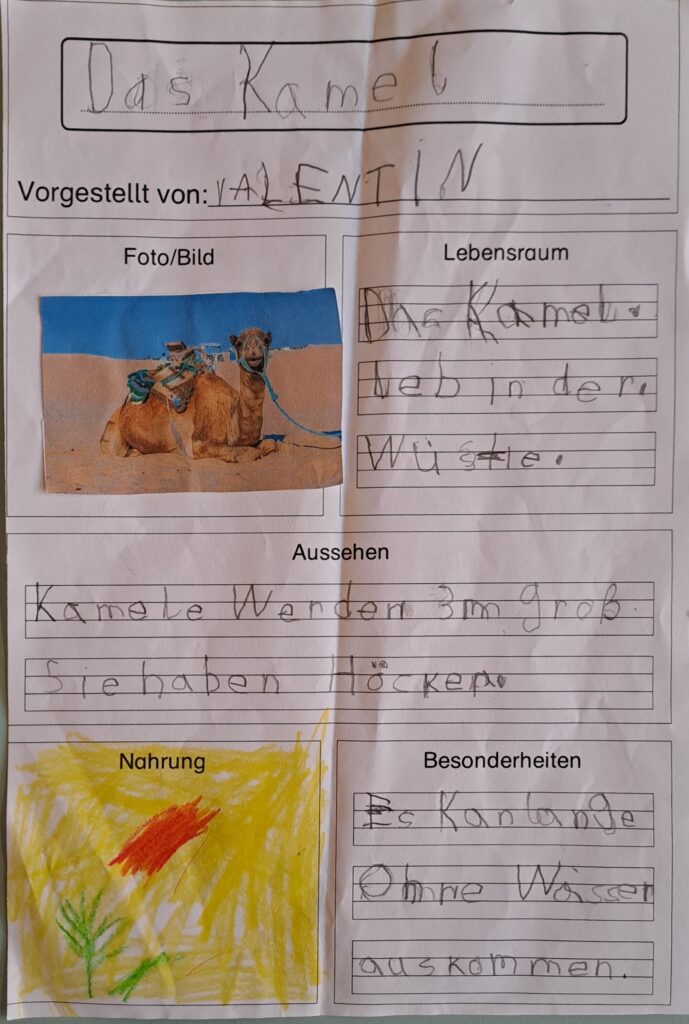 Das Kamel
Vorgestellt von: VALENTIN
Foto/Bild
Lebensraum
Das Kamel.
leb in der.
Wüste.
Aussehen
Kamele Werden 3m groß.
Sie haben Höcker.
Nahrung
Besonderheiten
Es Kan lange
Ohne Wasser
auskommen.